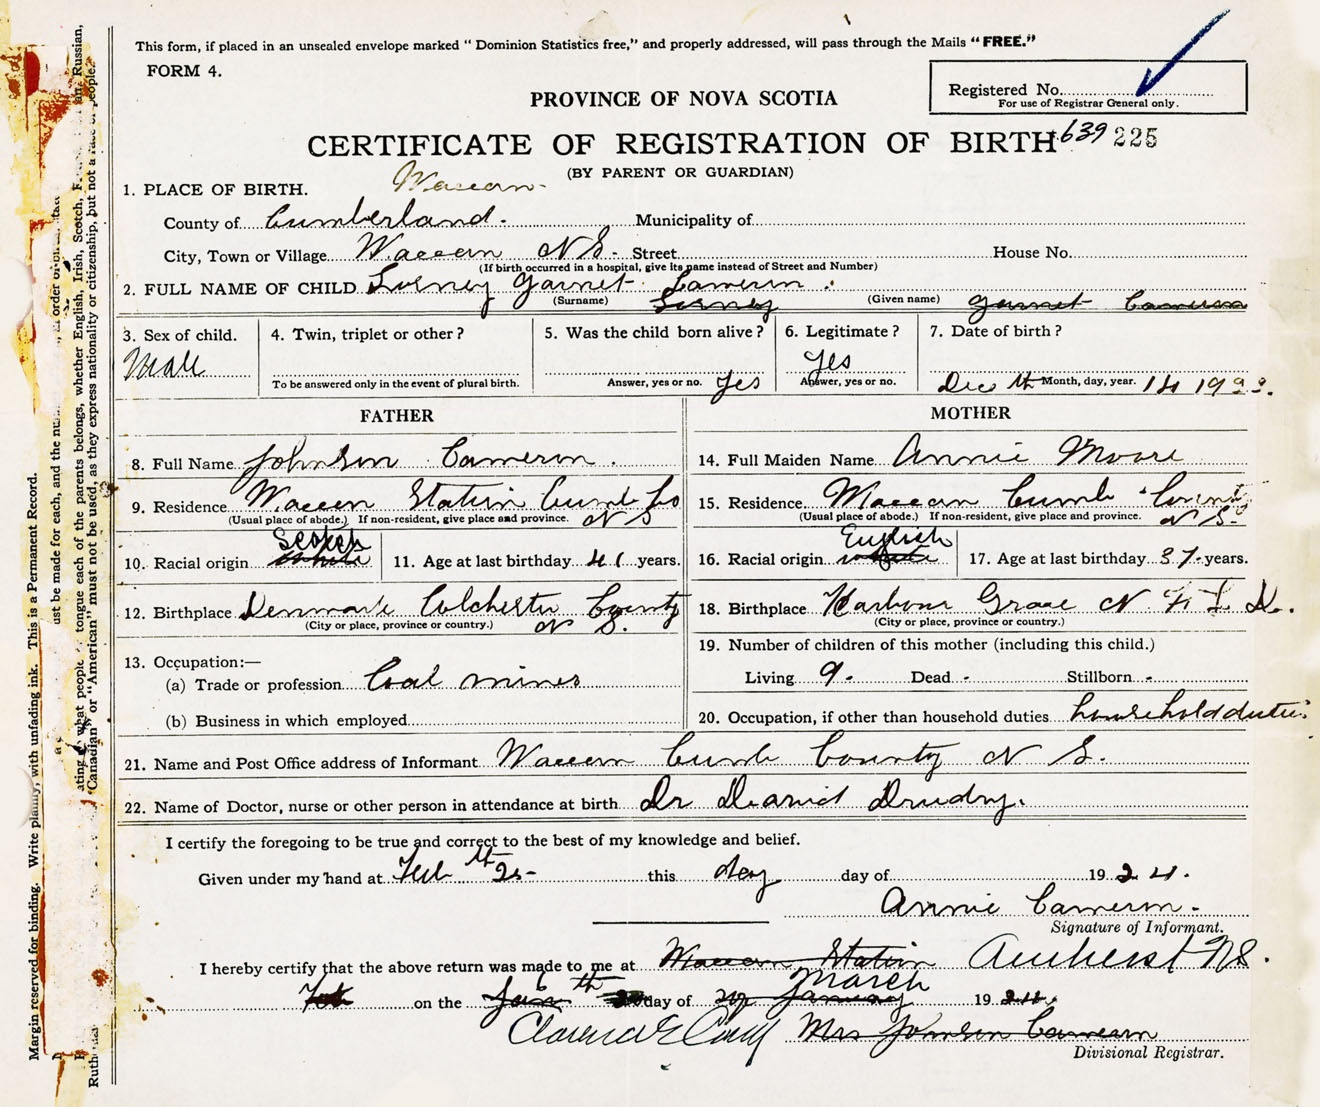 This form, if placed in an unsealed envelope marked “ Dominion Statistics free,” and properly addressed, will pass through the Mails “ FREE.”
FORM 4.
Registered No.
For use of Registrar General only.
PROVINCE OF NOVA SCOTIA
CERTIFICATE OF REGISTRATION OF BIRTH 639 225
(BY PARENT OR GUARDIAN)
1. PLACE OF BIRTH. Maccan
County of Cumberland. Municipality of
City, Town or Village Maccan N S. Street House No.
(If birth occurred in a hospital, give its name instead of Street and Number)
2. FULL NAME OF CHILD Garnet Cameron.
(Surname) (Given name) Garnet Cameron
3. Sex of child. 4. Twin, triplet or other ? 5. Was the child born alive ? 6. Legitimate ? 7. Date of birth ?
Male Yes
To be answered only in the event of plural birth. Answer, yes or no. Yes Answer, yes or no. Dec th Month, day, year. 14 1923.
FATHER MOTHER
8. Full Name Johnson Cameron. 14. Full Maiden Name Annie Moore
9. Residence Maccan Station Cumb Co 15. Residence Maccan Cumb County
(Usual place of abode.) If non-resident, give place and province. N S (Usual place of abode.) If non-resident, give place and province. N S.
Scotch English
10. Racial origin white 11. Age at last birthday 41 years. 16. Racial origin white 17. Age at last birthday 37 years.
12. Birthplace Denmark Colchester County 18. Birthplace Harbour Grace N F L D.
(City or place, province or country.) N S. (City or place, province or country.)
19. Number of children of this mother (including this child.)
13. Occupation:—
(a) Trade or profession Coal miner Living 9. Dead - Stillborn -
(b) Business in which employed 20. Occupation, if other than household duties household duties
21. Name and Post Office address of Informant Maccan Cumb County N S.
22. Name of Doctor, nurse or other person in attendance at birth Dr David Drury.
I certify the foregoing to be true and correct to the best of my knowledge and belief.
Given under my hand at Feb th this day day of 1924.
Annie Cameron.
Signature of Informant.
I hereby certify that the above return was made to me at Maccan Station Amherst N.S.
March
Feb on the Jan 6th day of January 1924.
Mrs Johnson Cameron
Divisional Registrar.
Margin reserved for binding. Write plainly, with unfading ink. This is a Permanent Record.
ust be made for each, and the nu
tongue each of the parents belongs, whether English, Irish, Scotch,
Russian,
“Canadian” or “American” must not be used, as they express nationality or citizenship, but not a